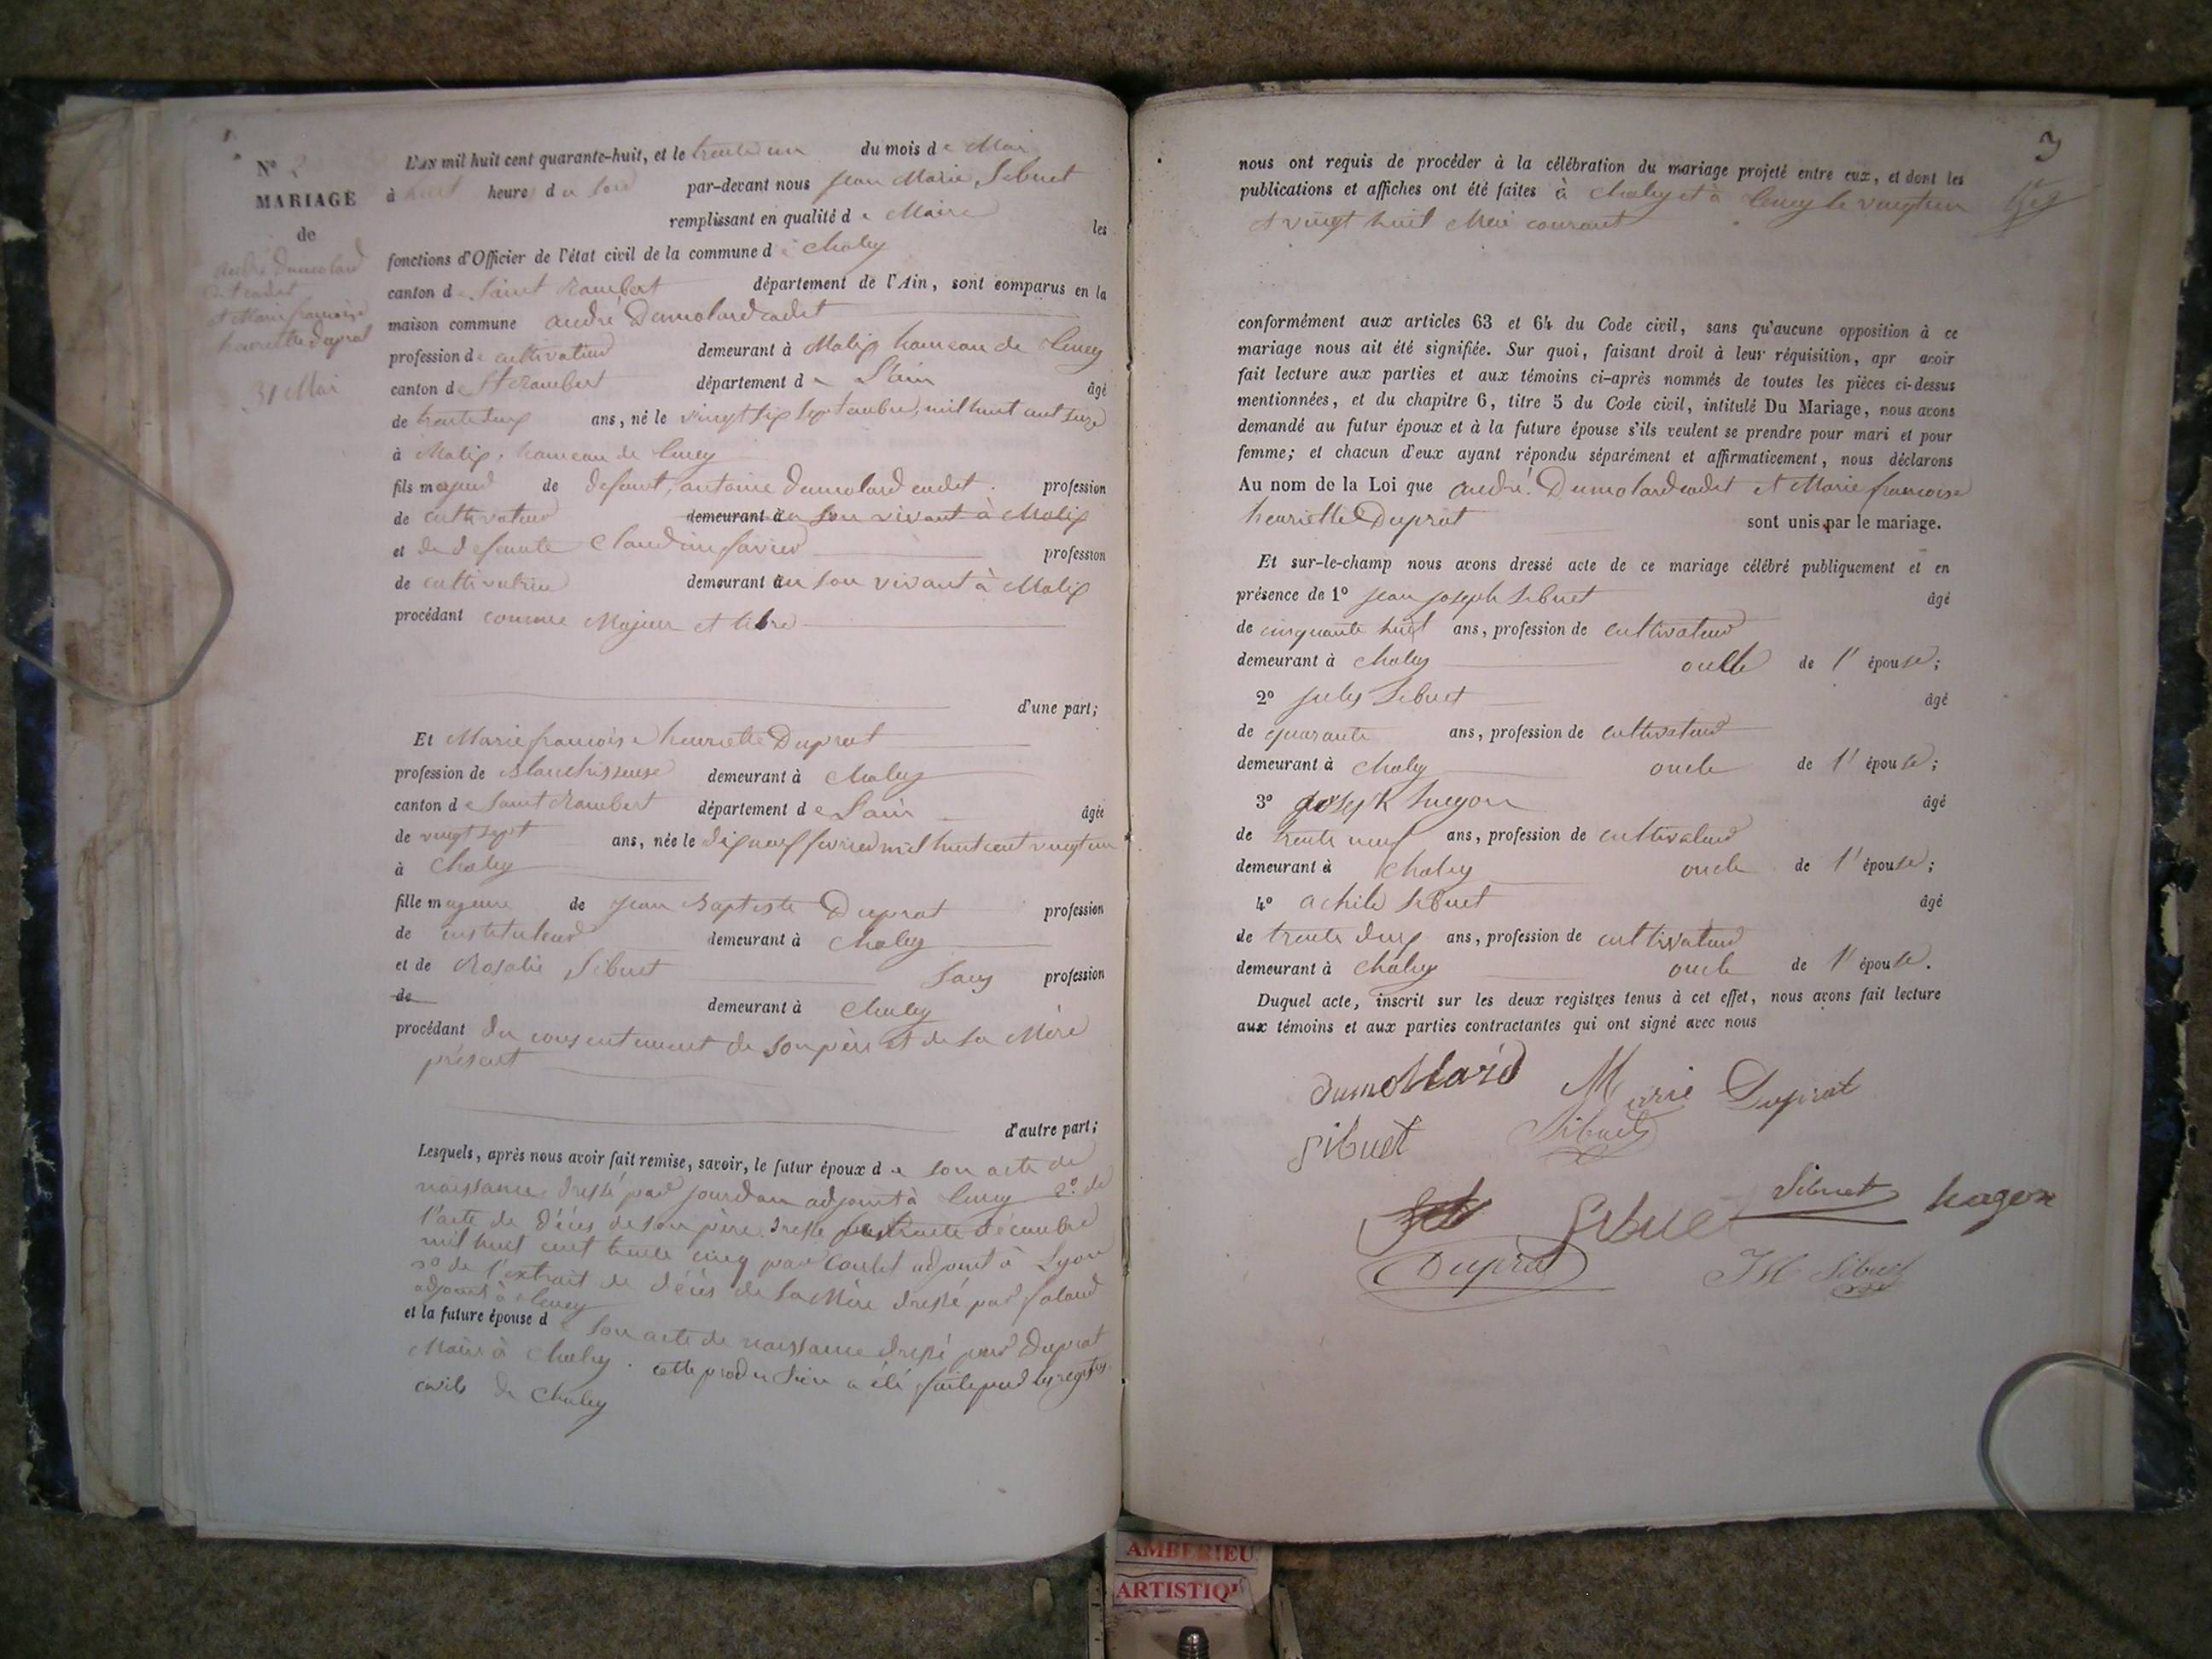 N° 2
MARIAGE
de
André Dumolard
dit cadet
et Marie francoise
henriette Duprat
31 Mai
L'AN mil huit cent quarante-huit, et le trente un du mois de Mai
à huit heures du soir par-devant nous Jean Marie Sibuet
remplissant en qualité de Maire les
fonctions d'Officier de l'état civil de la commune de Chaley
canton de Saint Rambert département de l'Ain, sont comparus en la
maison commune André Dumolard cadet
profession de cultivateur demeurant à Matix hameau de Cleyzieu
canton de St Rambert département de L'ain âgé
de trente deux ans, né le vingt six septembre, mil huit cent seize
à Matix, hameau de
fils majeur de defunt, antoine Dumolard cadet profession
de cultivateur demeurant à en son vivant à Matix
et de defunte Claudine favier profession
de cultivatrice demeurant à en son vivant à Matix
procédant comme Majeur et libre
d'une part;
Et Marie francoise henriette Duprat
profession de Blanchisseuse demeurant à Chaley
canton de Saint Rambert département de L'ain âgée
de vingt sept ans, née le dix neuf fevrier mil huit cent vingt un
à Chaley
fille majeure de Jean Baptiste Duprat profession
de instituteur demeurant à Chaley
et de Rosalie Sibuet Sans profession
de demeurant à Chaley
procédant du consentement de son père et de sa Mère
présent
d'autre part;
Lesquels, après nous avoir fait remise, savoir, le futur époux de son acte de
naissance dressé par Jourdan adjoint à 2° de
l'acte de décès de son père dressé le trente décembre
mil huit cent trente cinq par adjoint à Lyon
3° de l'extrait de décès de sa Mère dressé par
adjoint à
et la future épouse de son acte de naissance dressé par Duprat
Maire à Chaley. cette production a été faite par les registres
civils de Chaley
3
nous ont requis de procéder à la célébration du mariage projeté entre eux, et dont les
publications et affiches ont été faites à Chaley et à le vingt un
et vingt huit Mai courant
conformément aux articles 63 et 64 du Code civil, sans qu'aucune opposition à ce
mariage nous ait été signifiée. Sur quoi, faisant droit à leur réquisition, apr avoir
fait lecture aux parties et aux témoins ci-après nommés de toutes les pièces ci-dessus
mentionnées, et du chapitre 6, titre 5 du Code civil, intitulé Du Mariage, nous avons
demandé au futur époux et à la future épouse s'ils veulent se prendre pour mari et pour
femme; et chacun d'eux ayant répondu séparément et affirmativement, nous déclarons
Au nom de la Loi que André Dumolard cadet et Marie francoise
henriette Duprat sont unis par le mariage.
Et sur-le-champ nous avons dressé acte de ce mariage célébré publiquement et en
présence de 1° Jean Joseph Sibuet âgé
de cinquante huit ans, profession de cultivateur
demeurant à Chaley oncle de l'épouse;
2° Jules Sibuet âgé
de quarante ans, profession de cultivateur
demeurant à Chaley oncle de l'épouse;
3° Joseph âgé
de trente neuf ans, profession de cultivateur
demeurant à Chaley oncle de l'épouse;
4° Achile Sibuet âgé
de trente deux ans, profession de cultivateur
demeurant à Chaley oncle de l'épouse.
Duquel acte, inscrit sur les deux registres tenus à cet effet, nous avons fait lecture
aux témoins et aux parties contractantes qui ont signé avec nous
Dumollard Marie Duprat
Sibuet Sibuet
Sibuet Sibuet hugon
Duprat JM Sibuet
AMBERIEU
ARTISTIQU